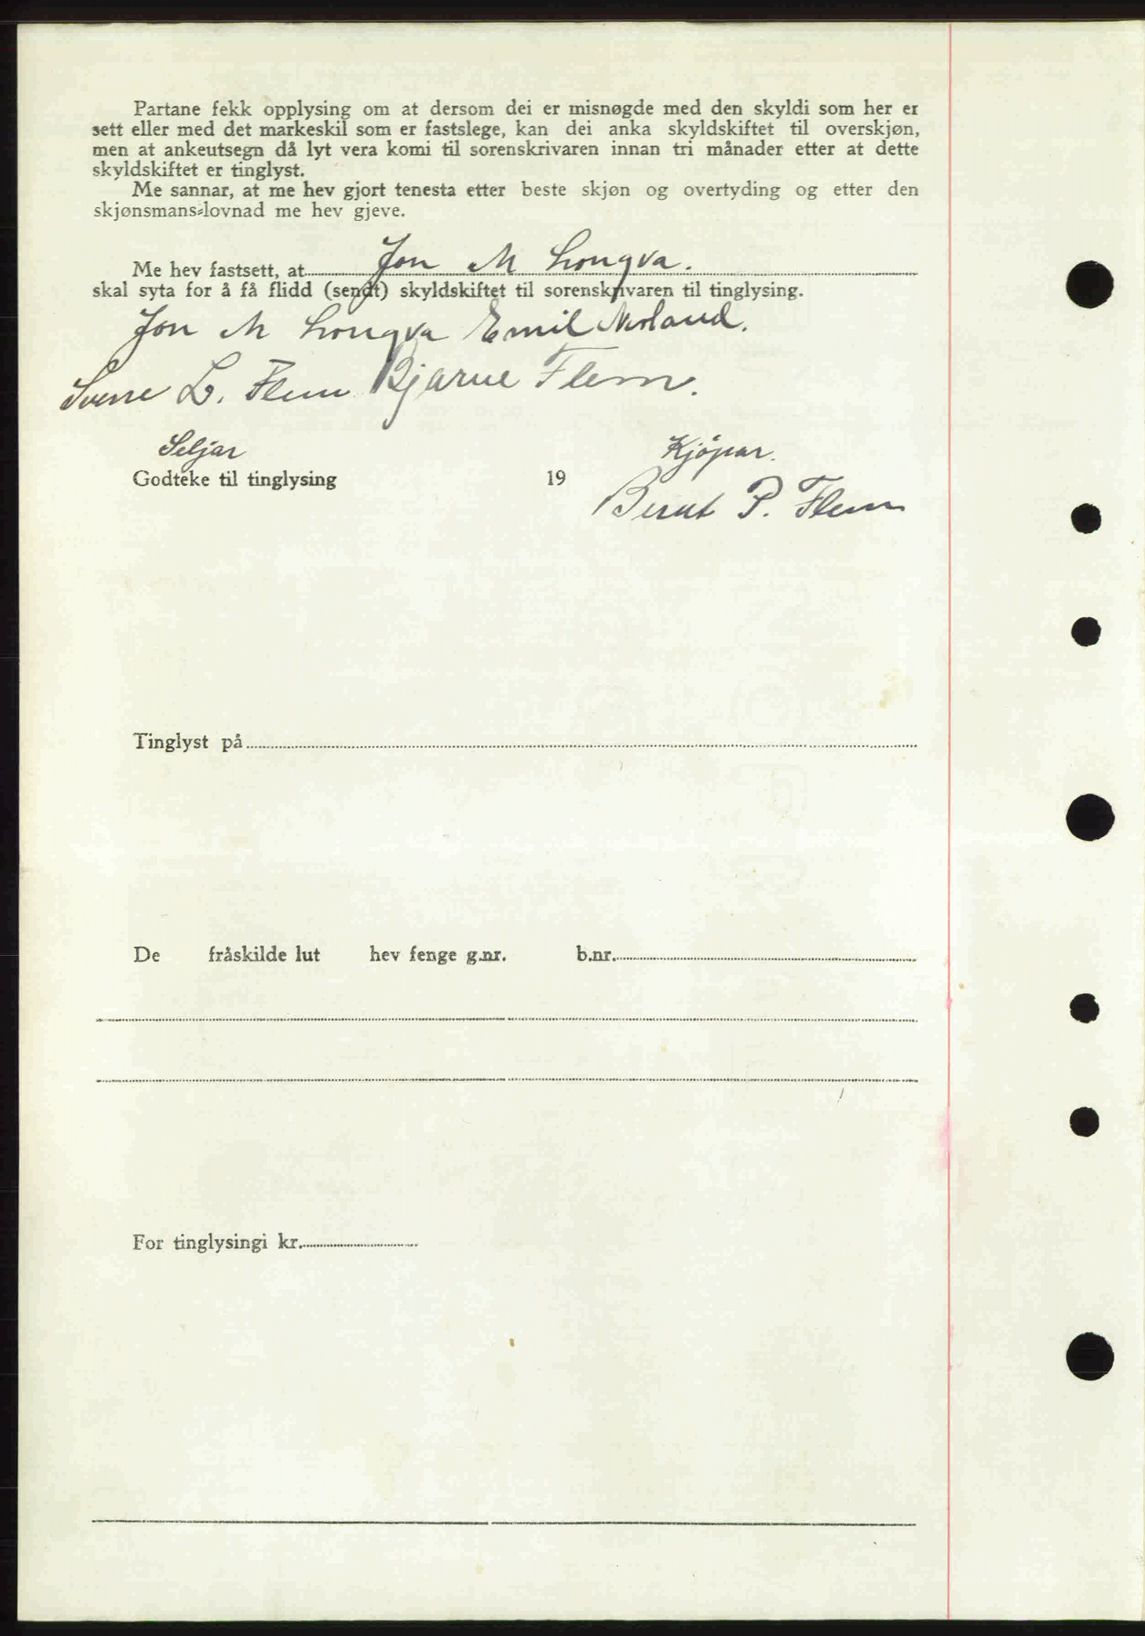 Partane fekk opplysing om at dersom dei er misnøgde med den skyldi som her er
sett eller med det markeskil som er fastslege, kan dei anka skyldskiftet til overskjøn,
men at ankeutsegn då lyt vera komi til sorenskrivaren innan tri månader etter at dette
skyldskiftet er tinglyst.
Me sannar, at me hev gjort tenesta etter beste skjøn og overtyding og etter den
skjønsmans-lovnad me hev gjeve.
Me hev fastsett, at Jon M Longva.
skal syta for å få flidd (sendt) skyldskiftet til sorenskrivaren til tinglysing.
Jon M Longva Emil
L. Flem Bjarne Flem.
Seljar Kjöpar.
Godteke til tinglysing 19
Bernt P. Flem
Tinglyst på
De fråskilde lut hev fenge g.nr. b.nr.
For tinglysingi kr.